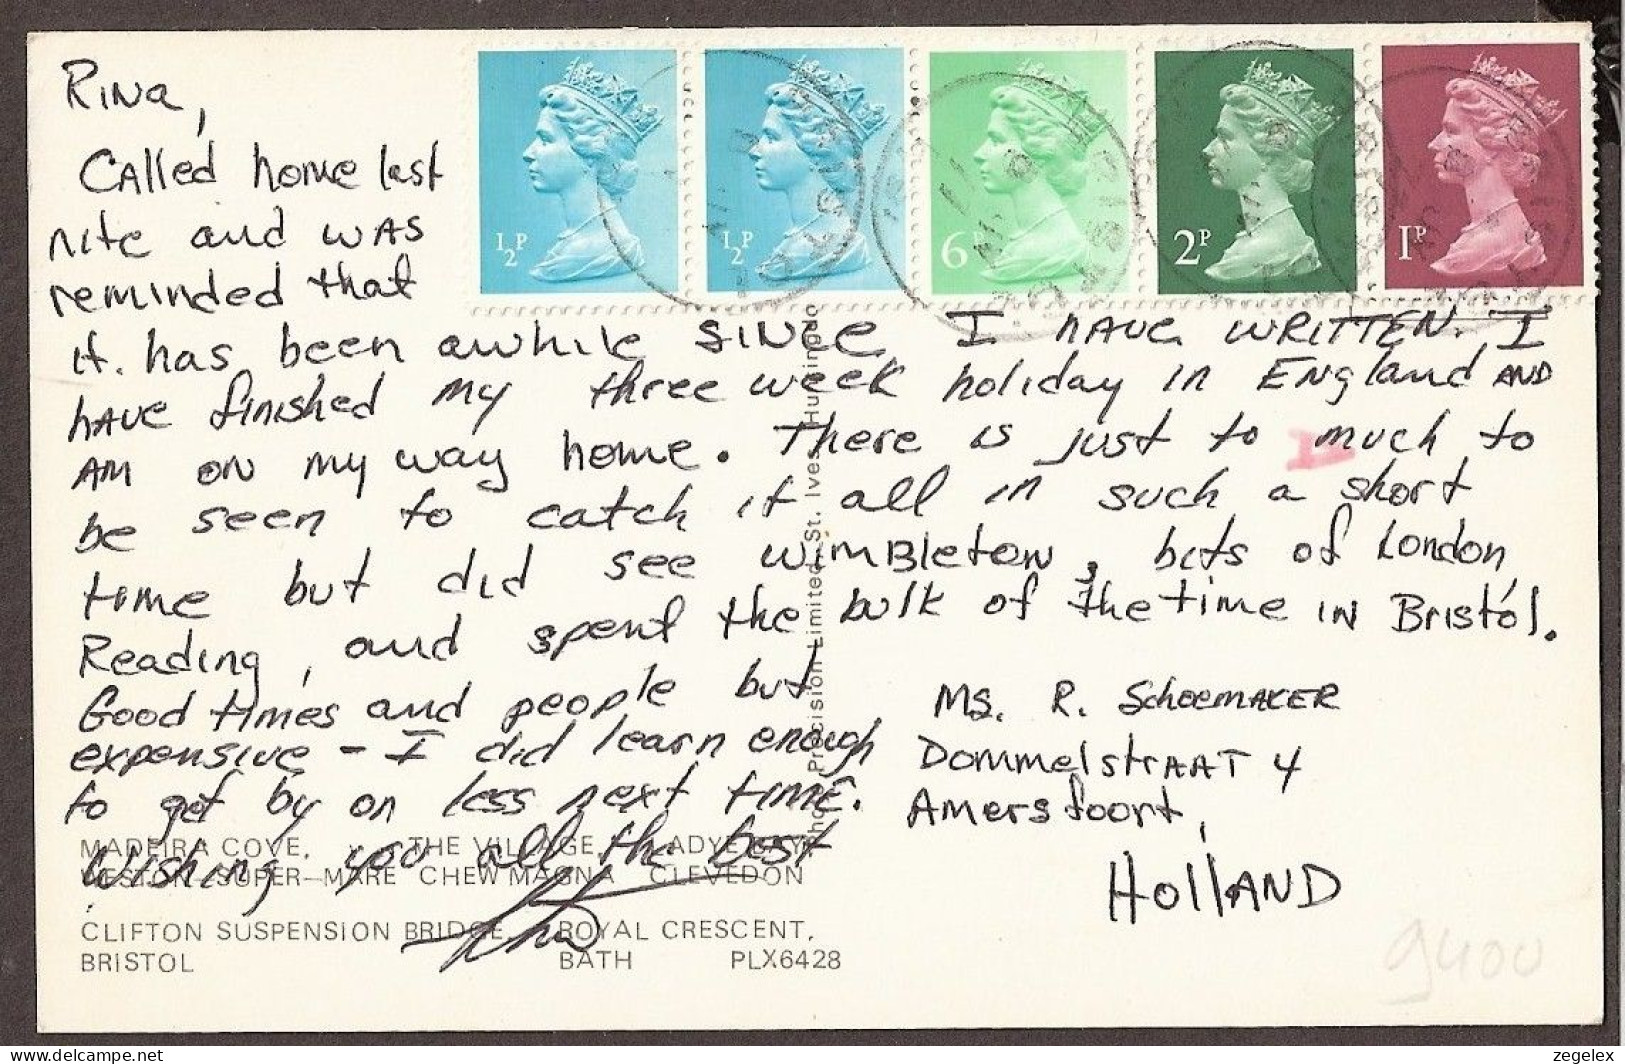 Rina,
Called home last
nite and was
reminded that
it has been awhile SINCE I HAVE WRITTEN. I
HAVE finished my three week holiday in England AND
AM ON my way home. There is just to much to
be seen to catch it all in such a short
time but did see WIMBleton, bits of London
Reading, and spent the bulk of the time IN Bristol.
Good times and people but
expensive - I did learn enough
to get by on less next time.
Wishing you all the best
½P
½P
6P
2P
1P
Ms. R. SchoEMAKER
DommelstrAAT 4
Amersfoort,
HollAND
MADEIRA COVE, THE VILLAGE, LADYE BAY,
WESTON-SUPER-MARE CHEW MAGNA CLEVEDON
CLIFTON SUSPENSION BRIDGE, ROYAL CRESCENT,
BRISTOL BATH PLX6428
Precision Limited, St. Ives, Huntingdo
9400
delcampe.net
zegelex